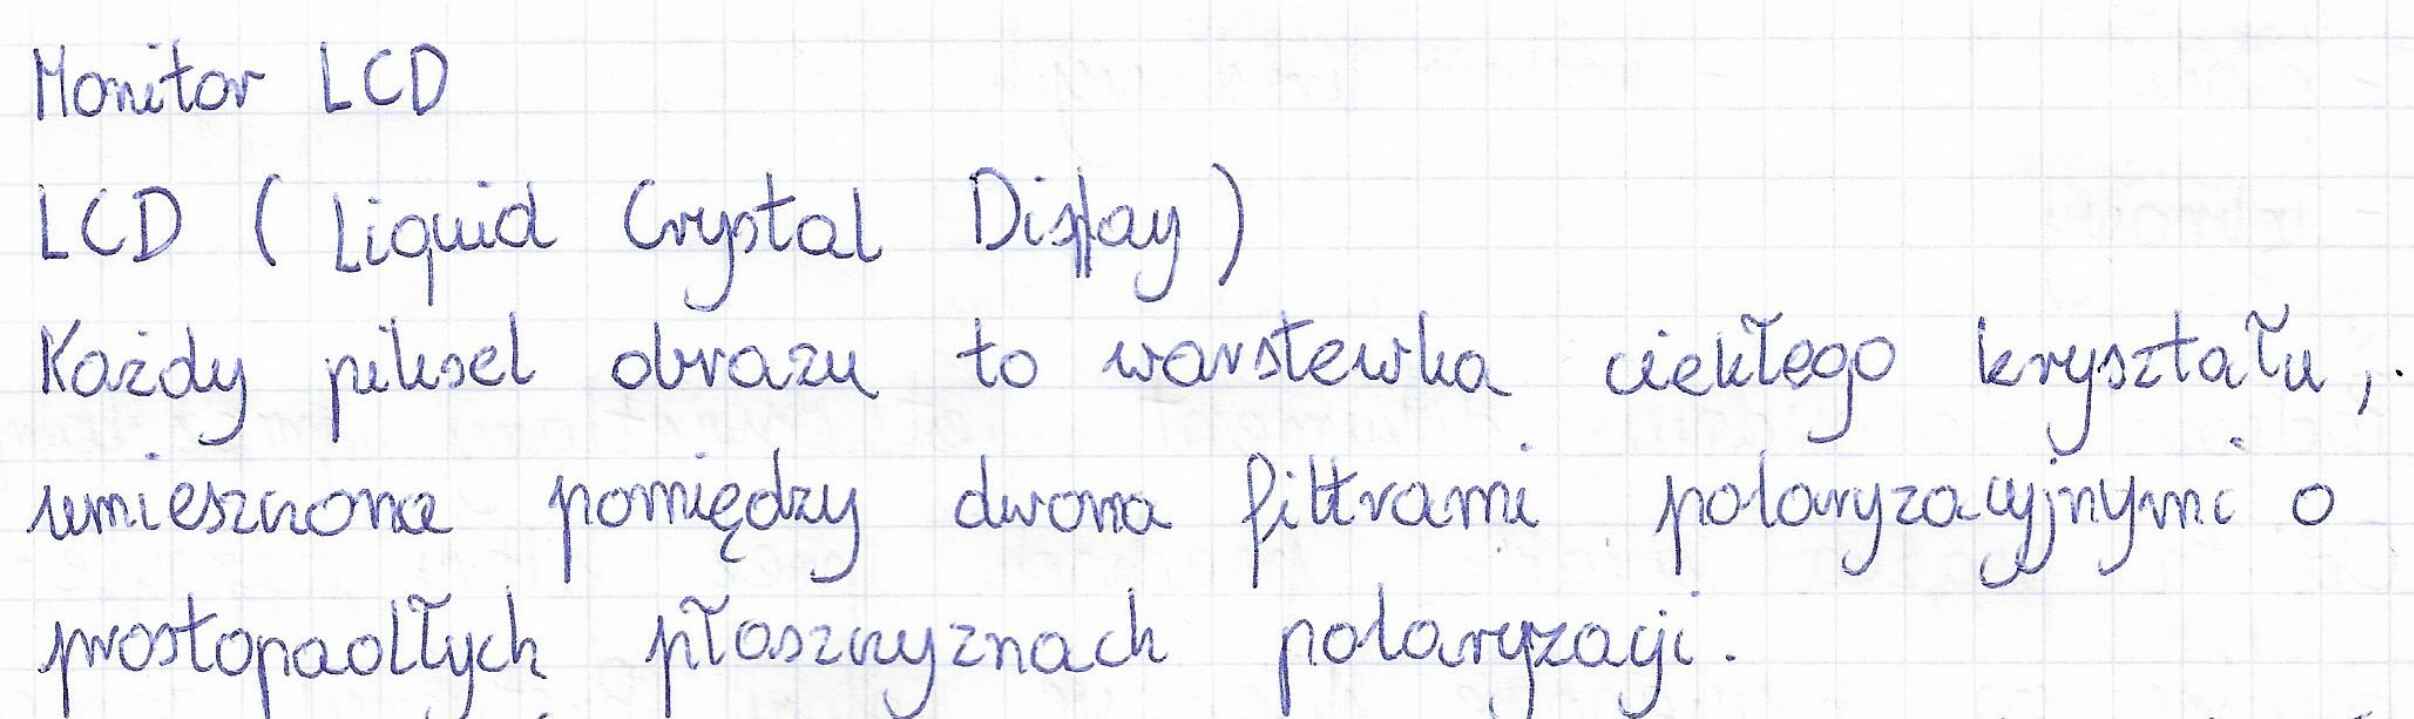 Monitor LCD
LCD (Liquid Crystal Display)
Każdy piksel obrazu to warstewka ciekłego kryształu,
umieszczona pomiędzy dwoma filtrami polaryzacyjnymi o
prostopadłych płaszczyznach polaryzacji.